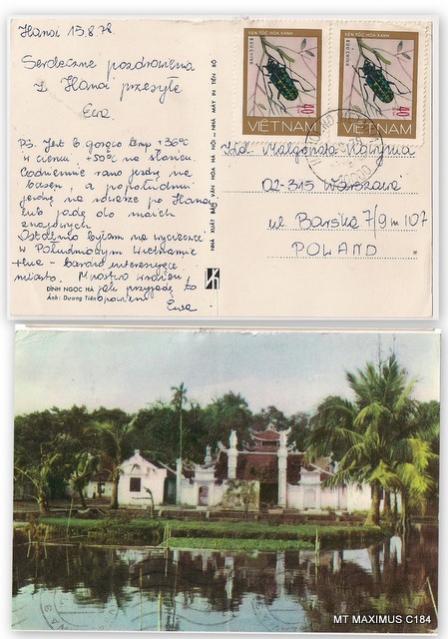 Hanoi 15.8.78.
Serdeczne pozdrowienia
z Hanoi przesyła
Ewa
PS. Jest b gorąco temp +36°
w cieniu, +50° na słońcu.
Codziennie rano jeżdżę na
basen, a popołudniu
jeżdżę na rowerze po Hanoi
lub jadę do moich
znajomych
Ostatnio byłam na wycieczce
w Południowym Wietnamie
bardzo interesujące
miasto.
jak przyjadę to
opowiem Ewa
ĐÌNH NGỌC HÀ
Ảnh: Dương Tiến
NHÀ XUẤT BẢN VĂN HÓA HÀ NỘI - NHÀ MÁY IN TIẾN BỘ
XÉN TÓC HOA XANH
BƯU CHÍNH
40
VIỆTNAM
XÉN TÓC HOA XANH
BƯU CHÍNH
40
VIỆTNAM
Małgorzata
02-315 Warszawa
ul Barska 7/9 m 107
POLAND
MT MAXIMUS C184